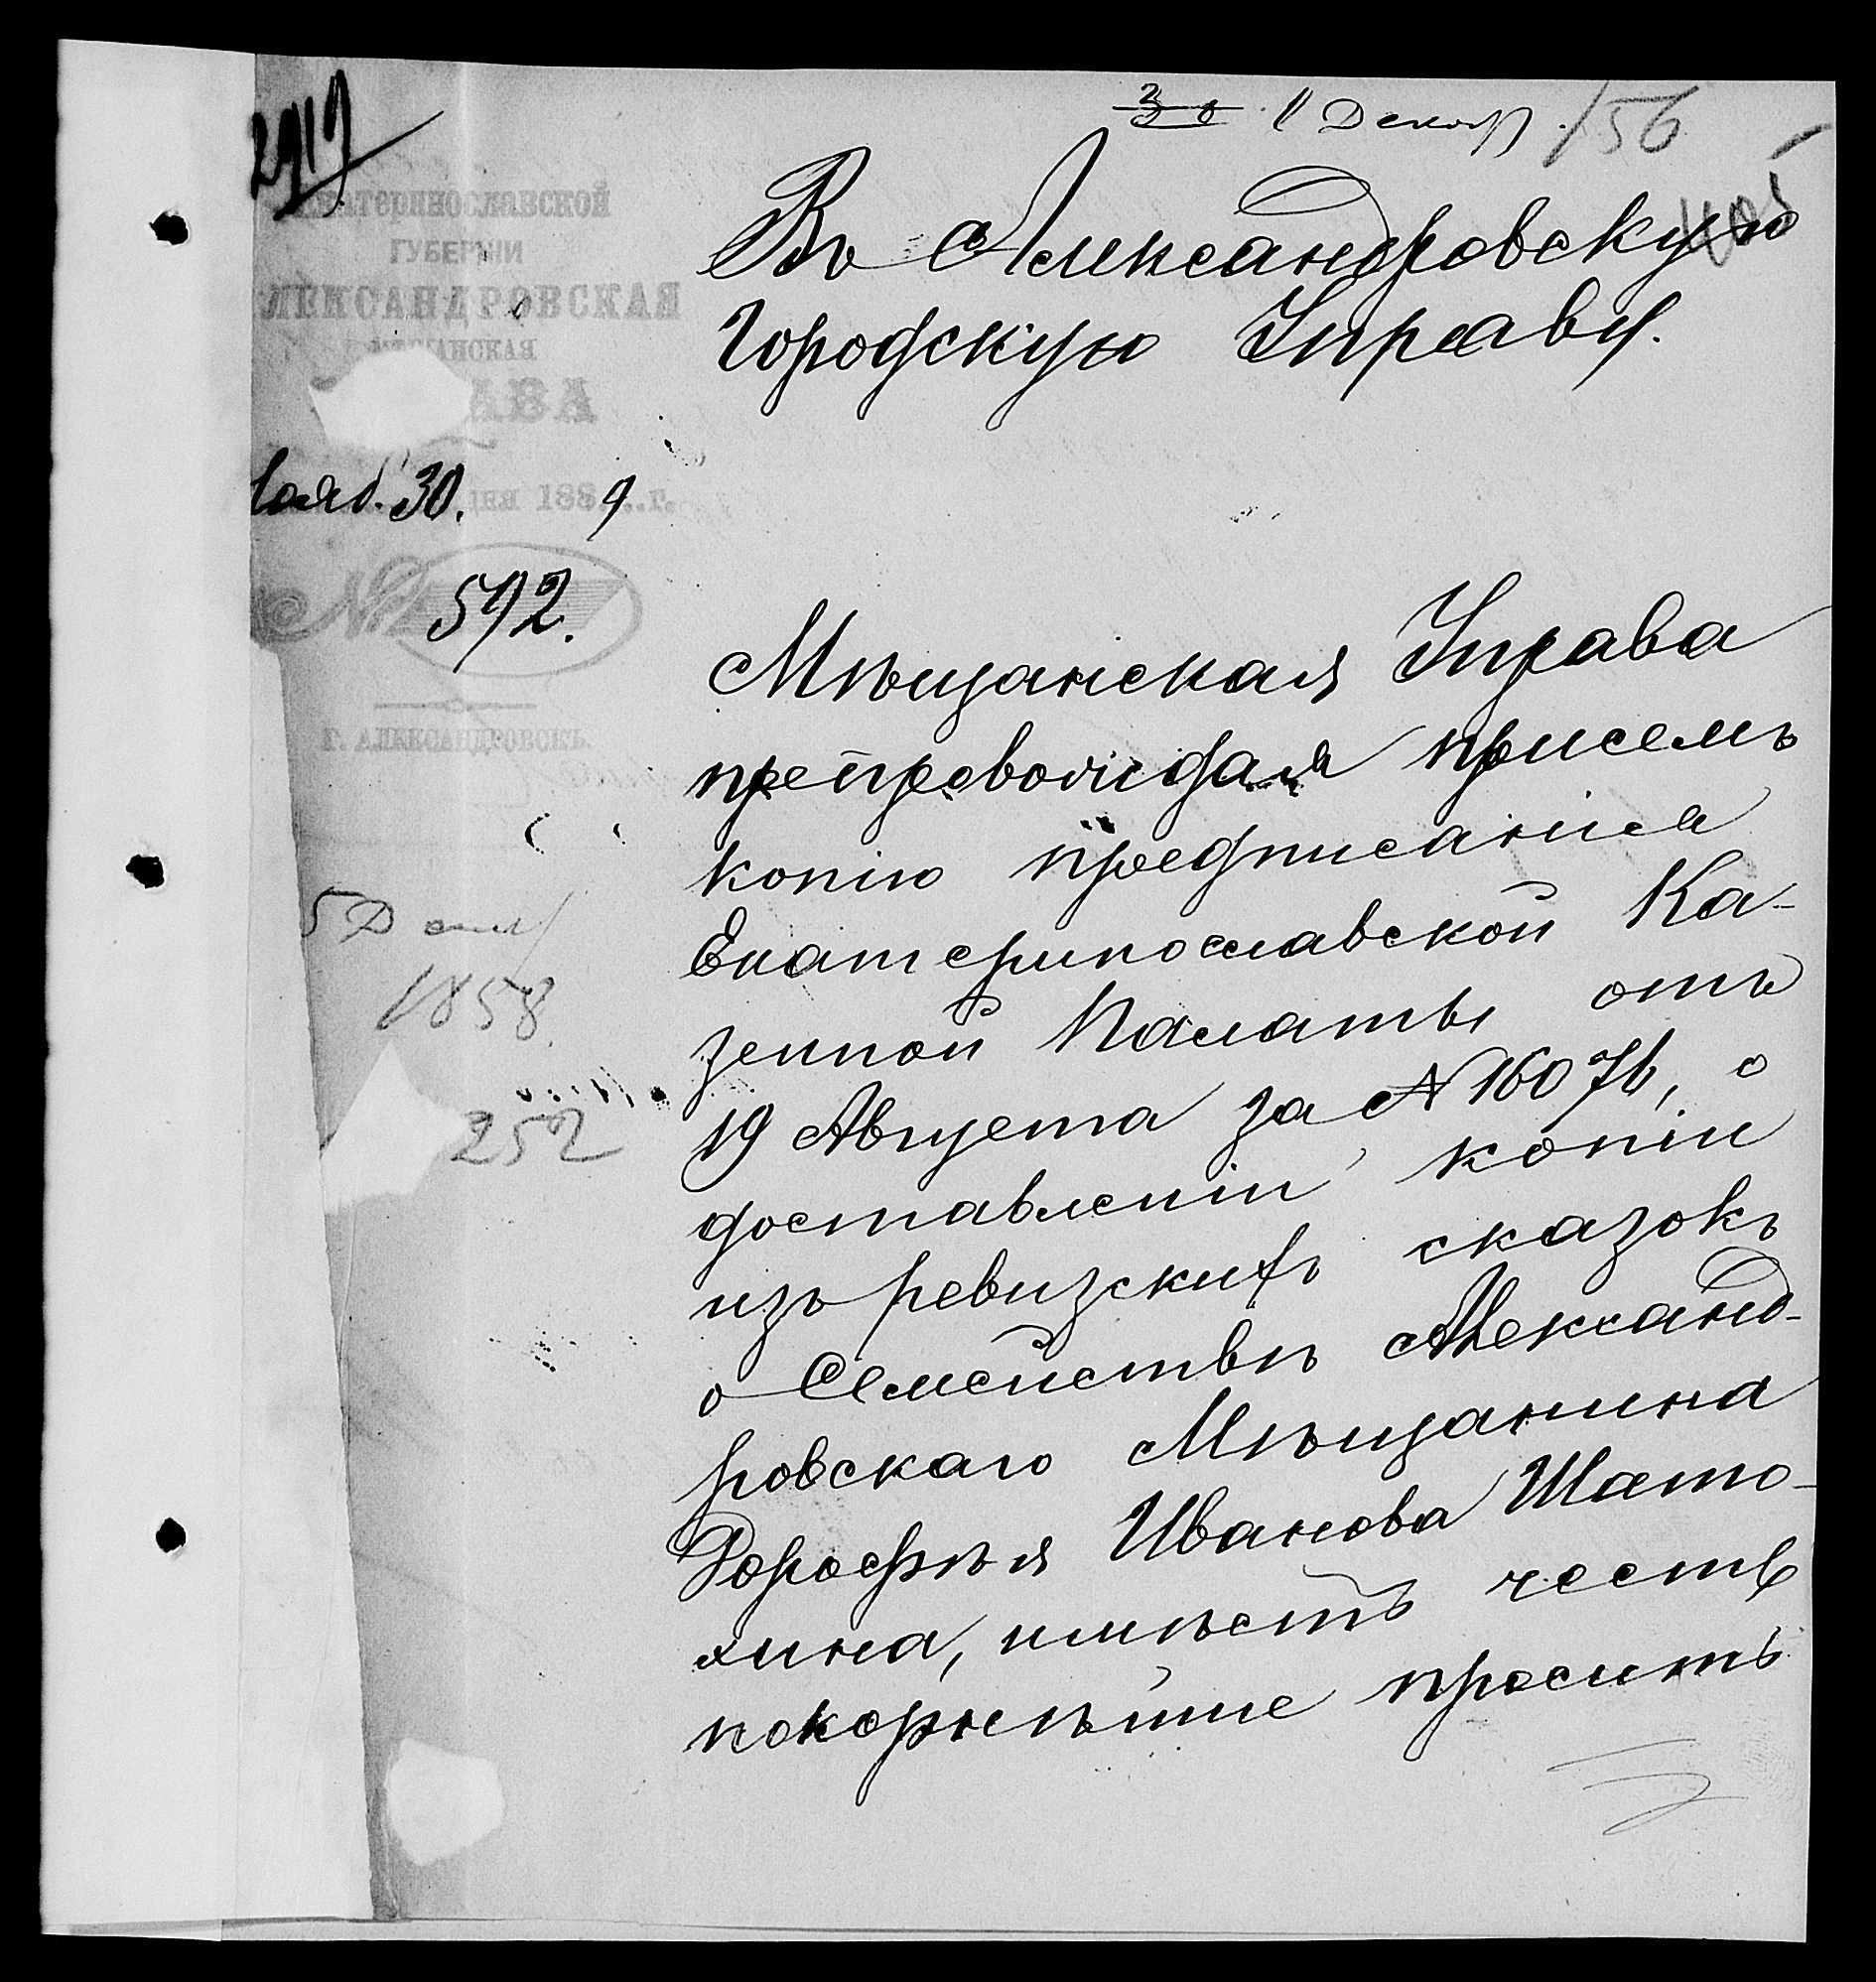 2919
11 Декабр. 156
405
ЕКАТЕРИНОСЛАВСКОЙ
ГУБЕРНИ
ЛЕКСАНДРОВСКАЯ
АНСКАЯ
АВА
Нояб. 30. дня 1889 г.
№ 592.
Г. АЛЕКСАНДРОВСКЪ.
5 Дек
1858.
252
Въ Александровскую
Городскую Управу.
Мѣщанская Управа
препровождая присемъ
копію предписанія
Екатеринославской Ка-
зенной Палаты отъ
19 Августа за № 16076, о
доставленіи копіи
изъ ревизскихъ сказокъ
о Семействѣ Александ-
ровскаго Мѣщанина
Дорофѣя Иванова Шато-
хина, имѣетъ честь
покорнѣйше просить